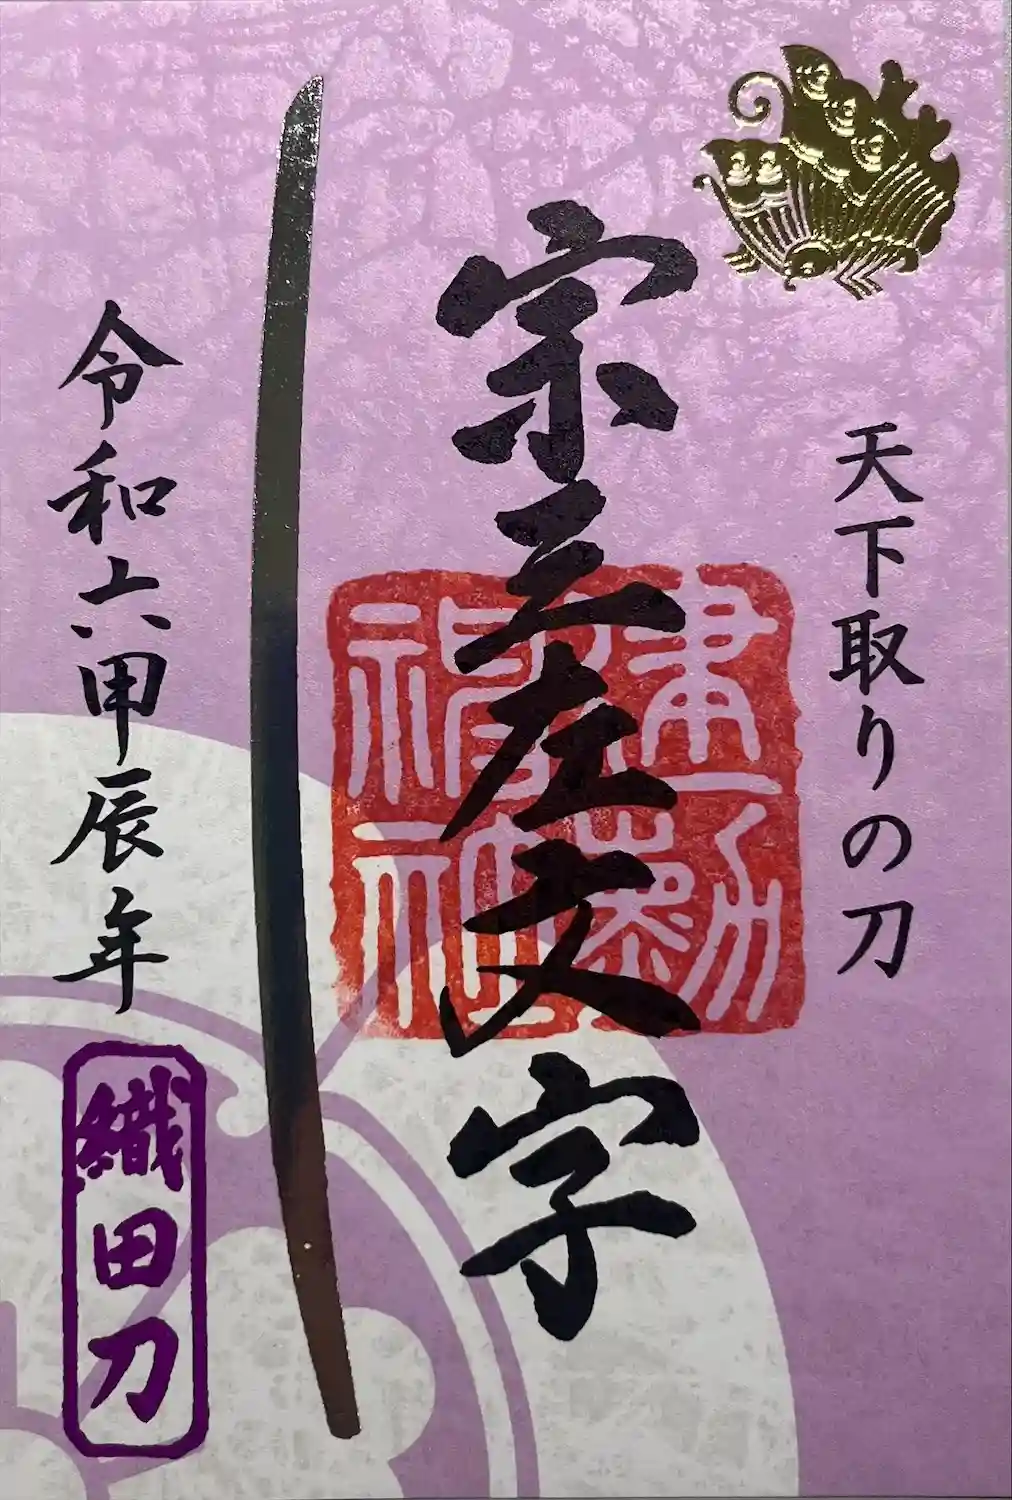 天下取りの刀
宗三左文字
建勲神社
令和六甲辰年
織田刀